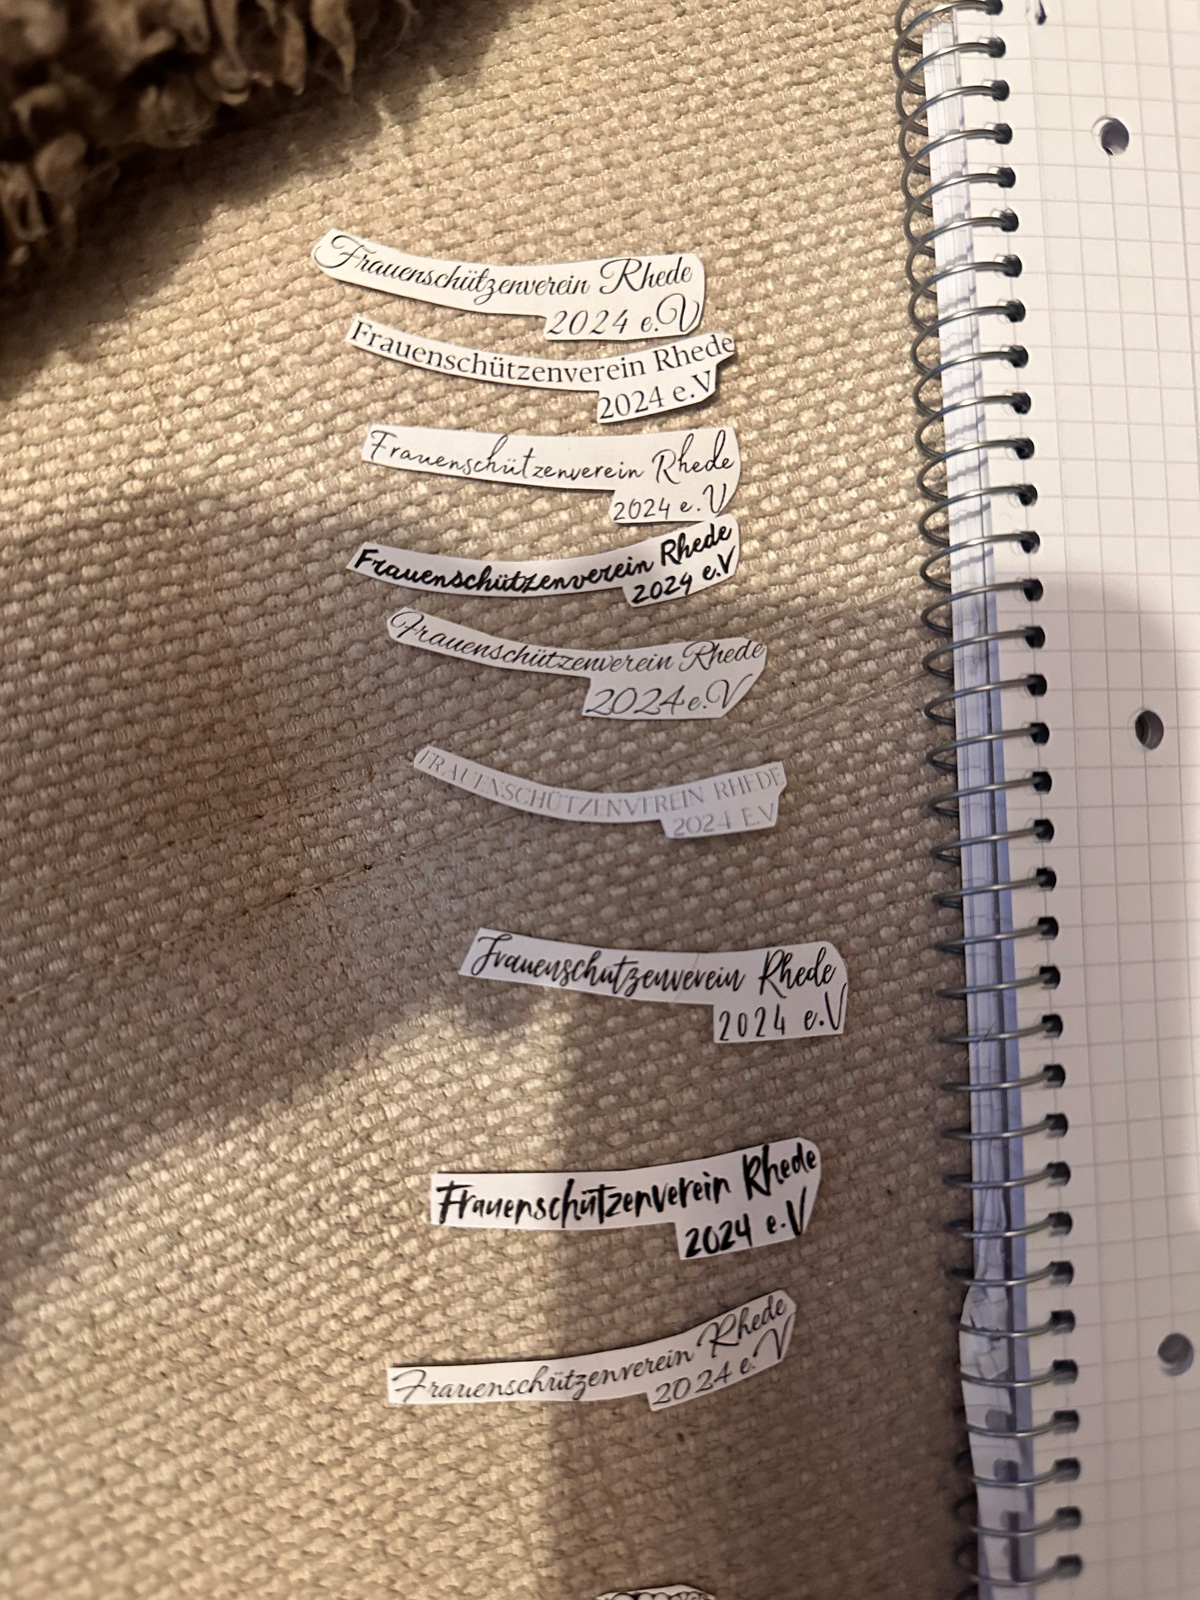 Frauenschützenverein Rhede
2024 e.V
Frauenschützenverein Rhede
2024 e.V
Frauenschützenverein Rhede
2024 e.V
Frauenschützenverein Rhede
2024 e.V
Frauenschützenverein Rhede
2024 e.V
FRAUENSCHÜTZENVEREIN RHEDE
2024 E.V
Frauenschutzenverein Rhede
2024 e.V
Frauenschützenverein Rhede
2024 e.V
Frauenschützenverein Rhede
2024 e.V